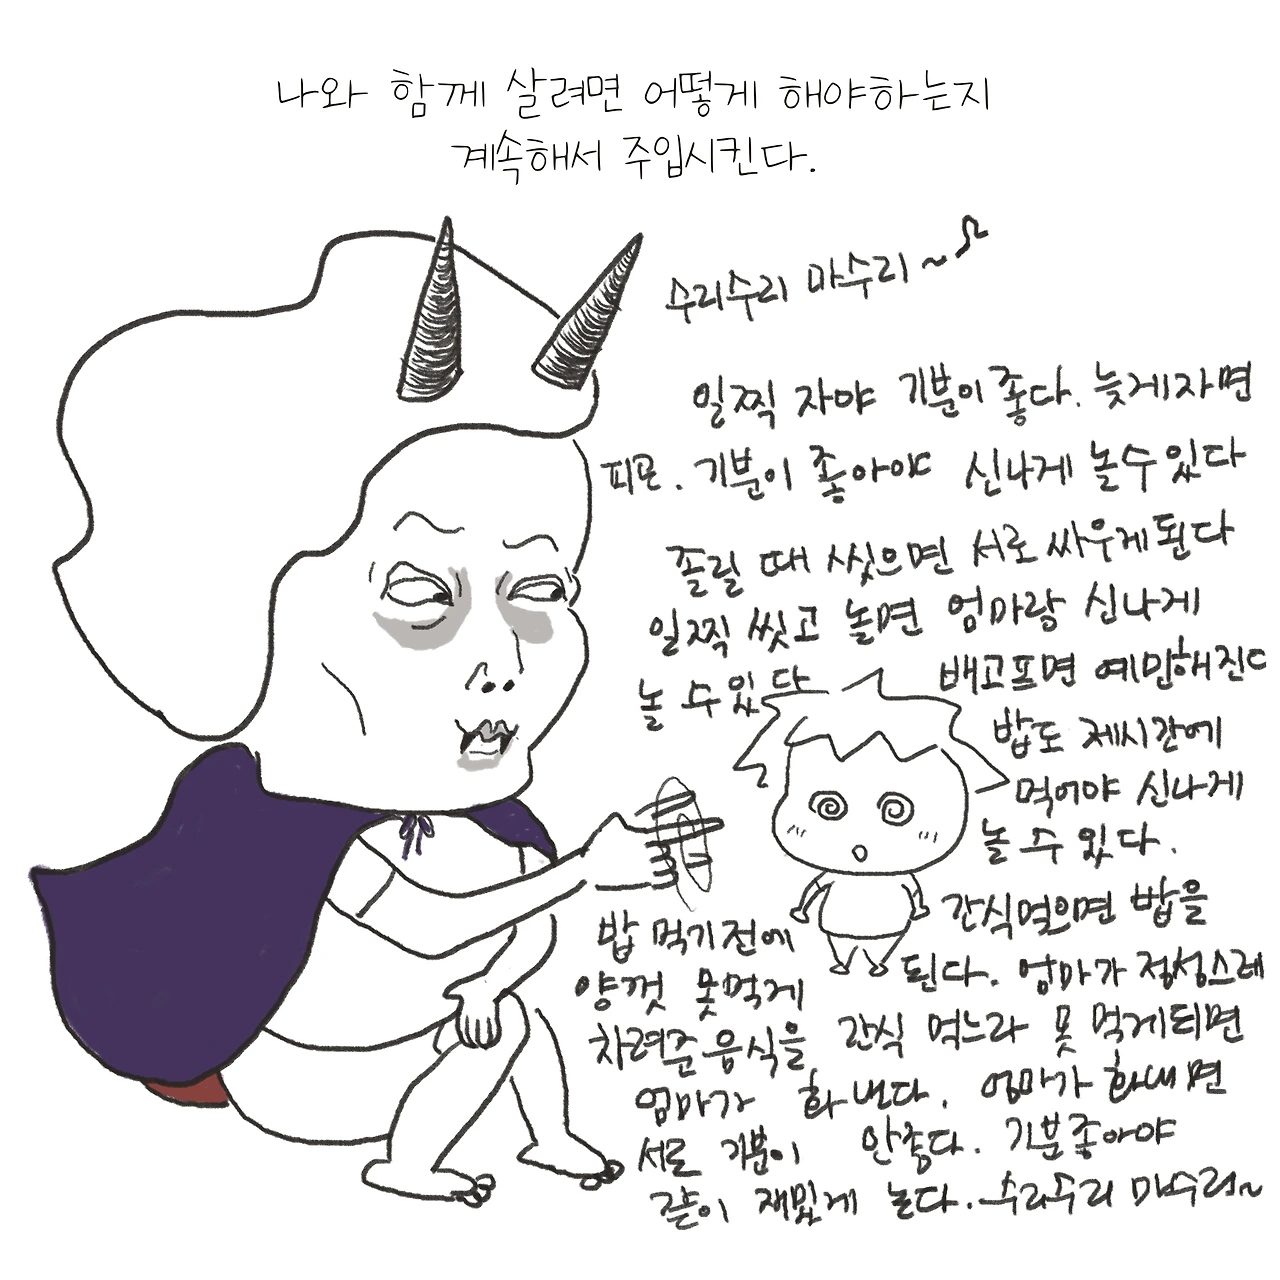 나와 함께 살려면 어떻게 해야하는지
계속해서 주입시킨다.
수리수리 마수리~
일찍 자야 기분이 좋다. 늦게자면
피곤. 기분이 좋아야 신나게 놀수있다
졸릴 때 씻으면 서로 싸우게된다
일찍 씻고 놀면 엄마랑 신나게
놀 수 있다
배고프면 예민해진다
밥도 제시간에
먹어야 신나게
놀 수 있다.
밥 먹기전에 간식먹으면 밥을
양껏 못먹게 된다. 엄마가 정성스레
차려준 음식을 간식 먹느라 못 먹게되면
엄마가 화낸다. 엄마가 화내면
서로 기분이 안좋다. 기분좋아야
같이 재밌게 논다. 수리수리 마수리~